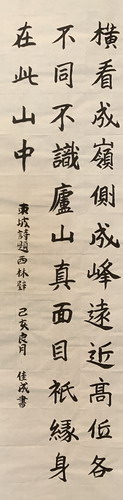 橫看成嶺側成峰遠近高低各
不同不識廬山真面目祇緣身
在此山中
東坡詩題西林壁 己亥良月 佳成書